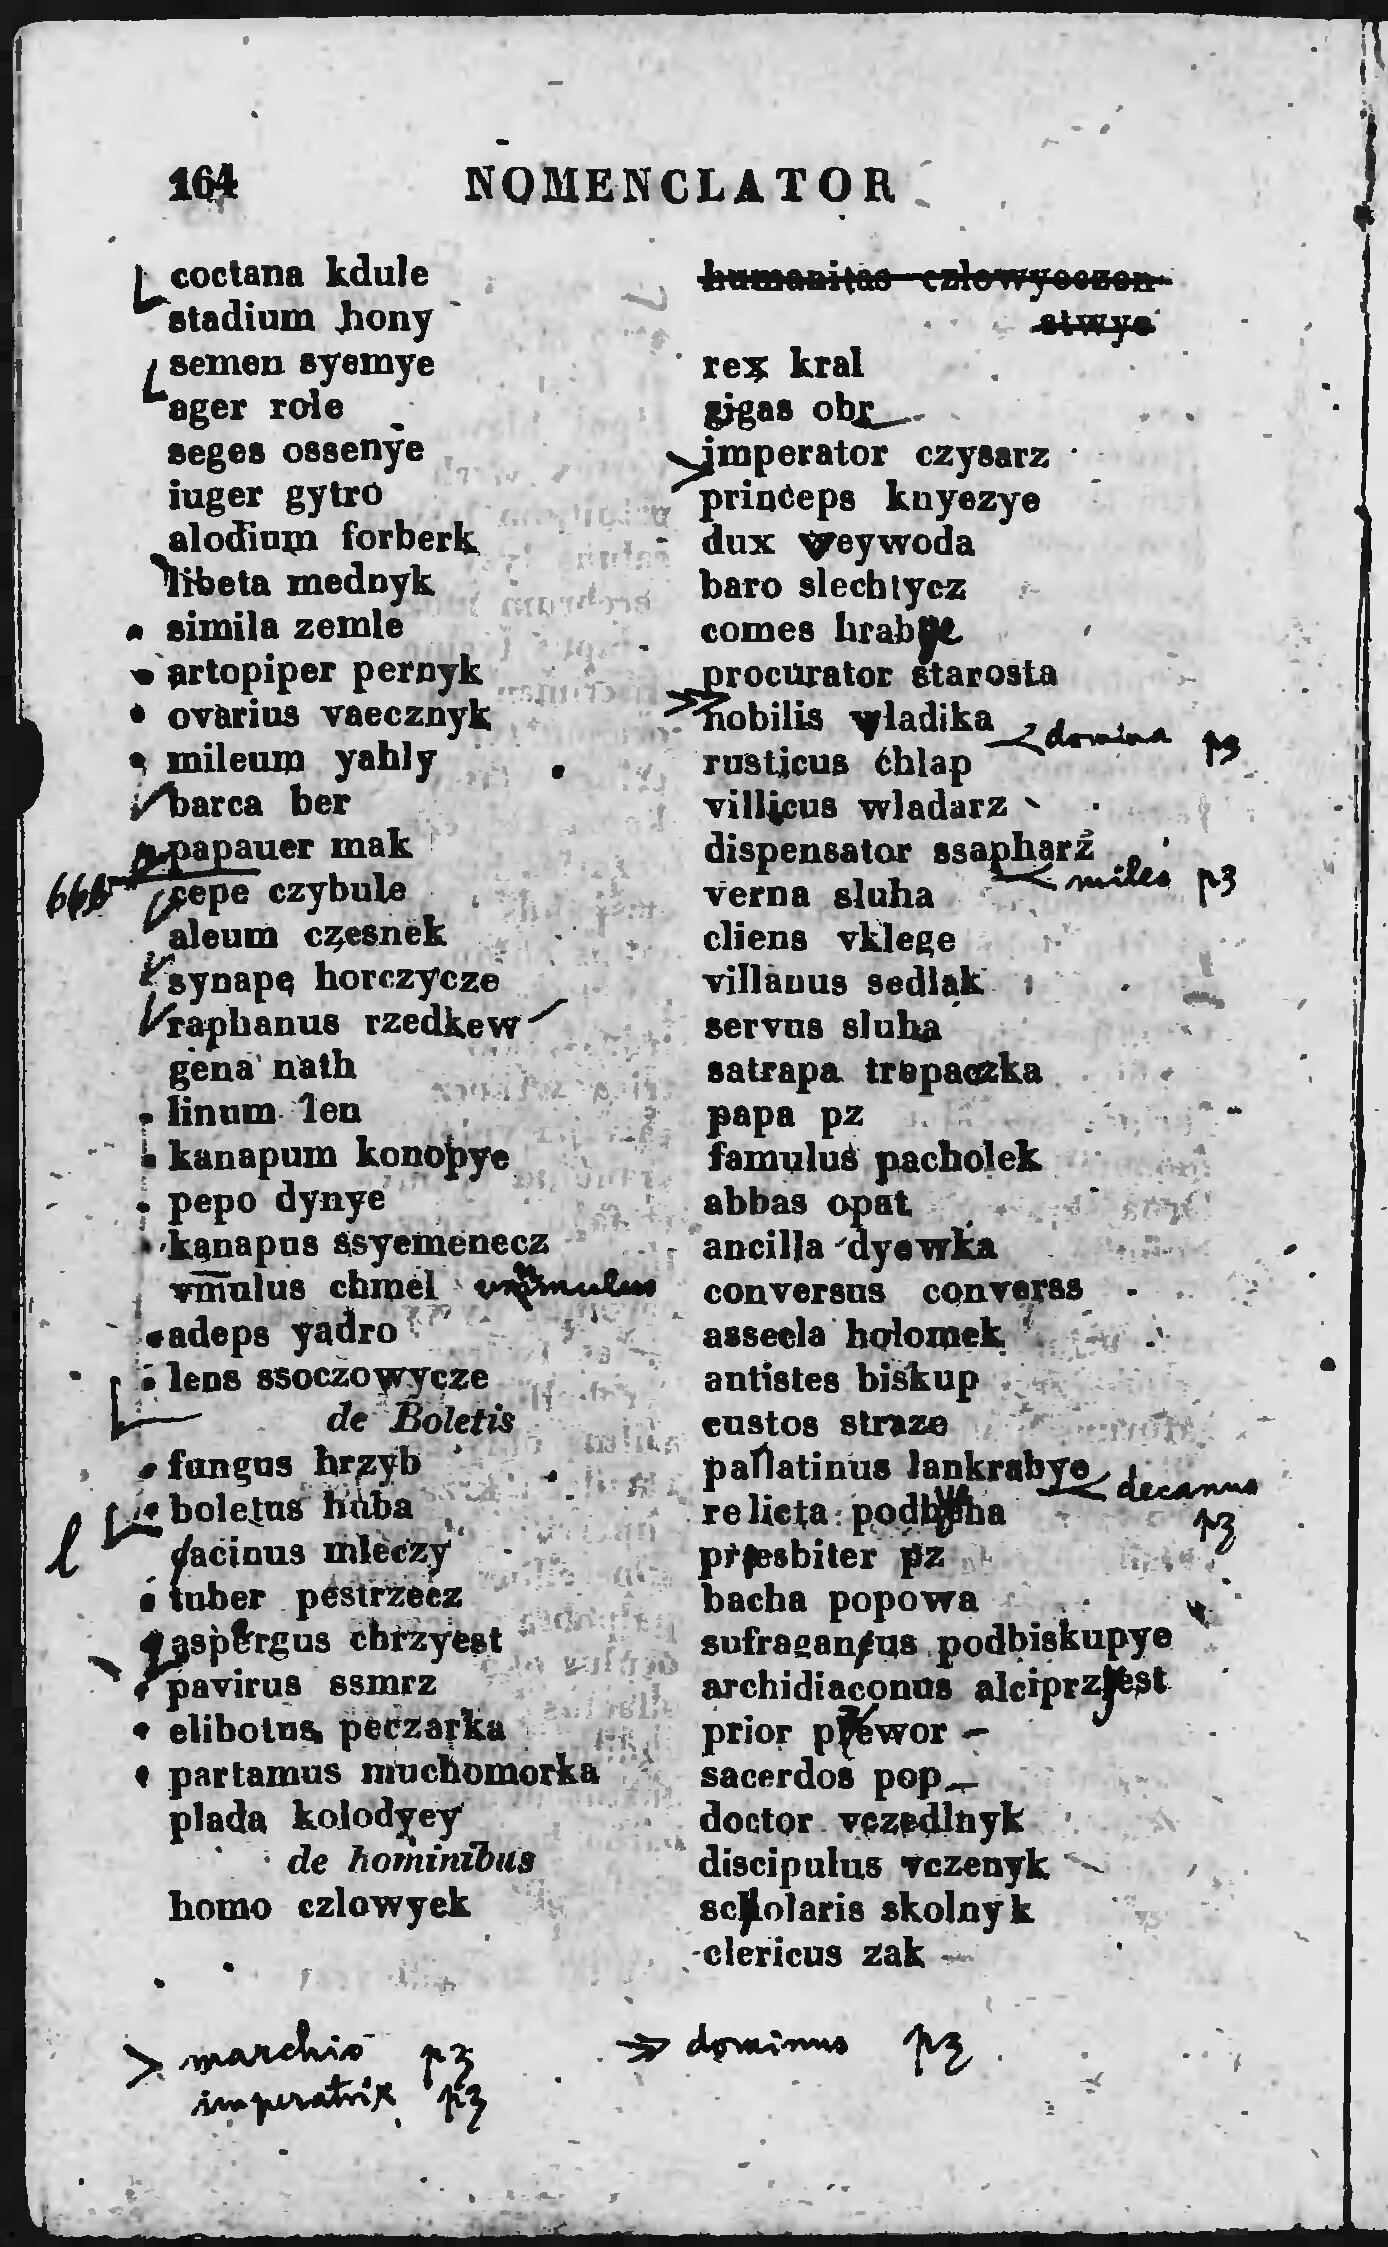 164 NOMENCLATOR
coctana kdule
stadium hony
semen syemye
ager role
seges ossenye
iuger gytro
alodium forberk
libeta mednyk
simila zemle
artopiper pernyk
ovarius vaecznyk
mileum yahly
barca ber
papauer mak
666
cepe czybule
aleum czesnek
synape horczycze
raphanus rzedkew
gena nath
linum len
kanapum konopye
pepo dynye
kanapus ssyemenecz
vmulus chmel
adeps yadro
lens ssoczowycze
de Boletis
fungus hrzyb
boletus huba
l
facinus mleczy
tuber pestrzecz
aspergus chrzyest
pavirus ssmrz
elibotus peczarka
partamus muchomorka
plada kolodyey
de hominibus
homo czlowyek
> marchio pz
imperatrix pz
humanitas czlowyeczen
stwye
rex kral
gigas obr
imperator czysarz
princeps knyezye
dux weywoda
baro slechtycz
comes hrabye
procurator starosta
nobilis wladika
< domina pz
rusticus chlap
villicus wladarz
dispensator ssapharz
< miles pz
verna sluha
cliens vklege
villanus sedlak
servus sluha
satrapa trepaczka
papa pz
famulus pacholek
abbas opat
ancilla dyewka
conversus converss
assecla holomek
antistes biskup
custos straze
pallatinus lankrabye
< decanus pz
relicta podbyeha
presbiter pz
bacha popowa
sufraganeus podbiskupye
archidiaconus alciprzyest
prior przewor
sacerdos pop
doctor vczedlnyk
discipulus vczenyk
scholaris skolnyk
clericus zak
≫ dominus pz